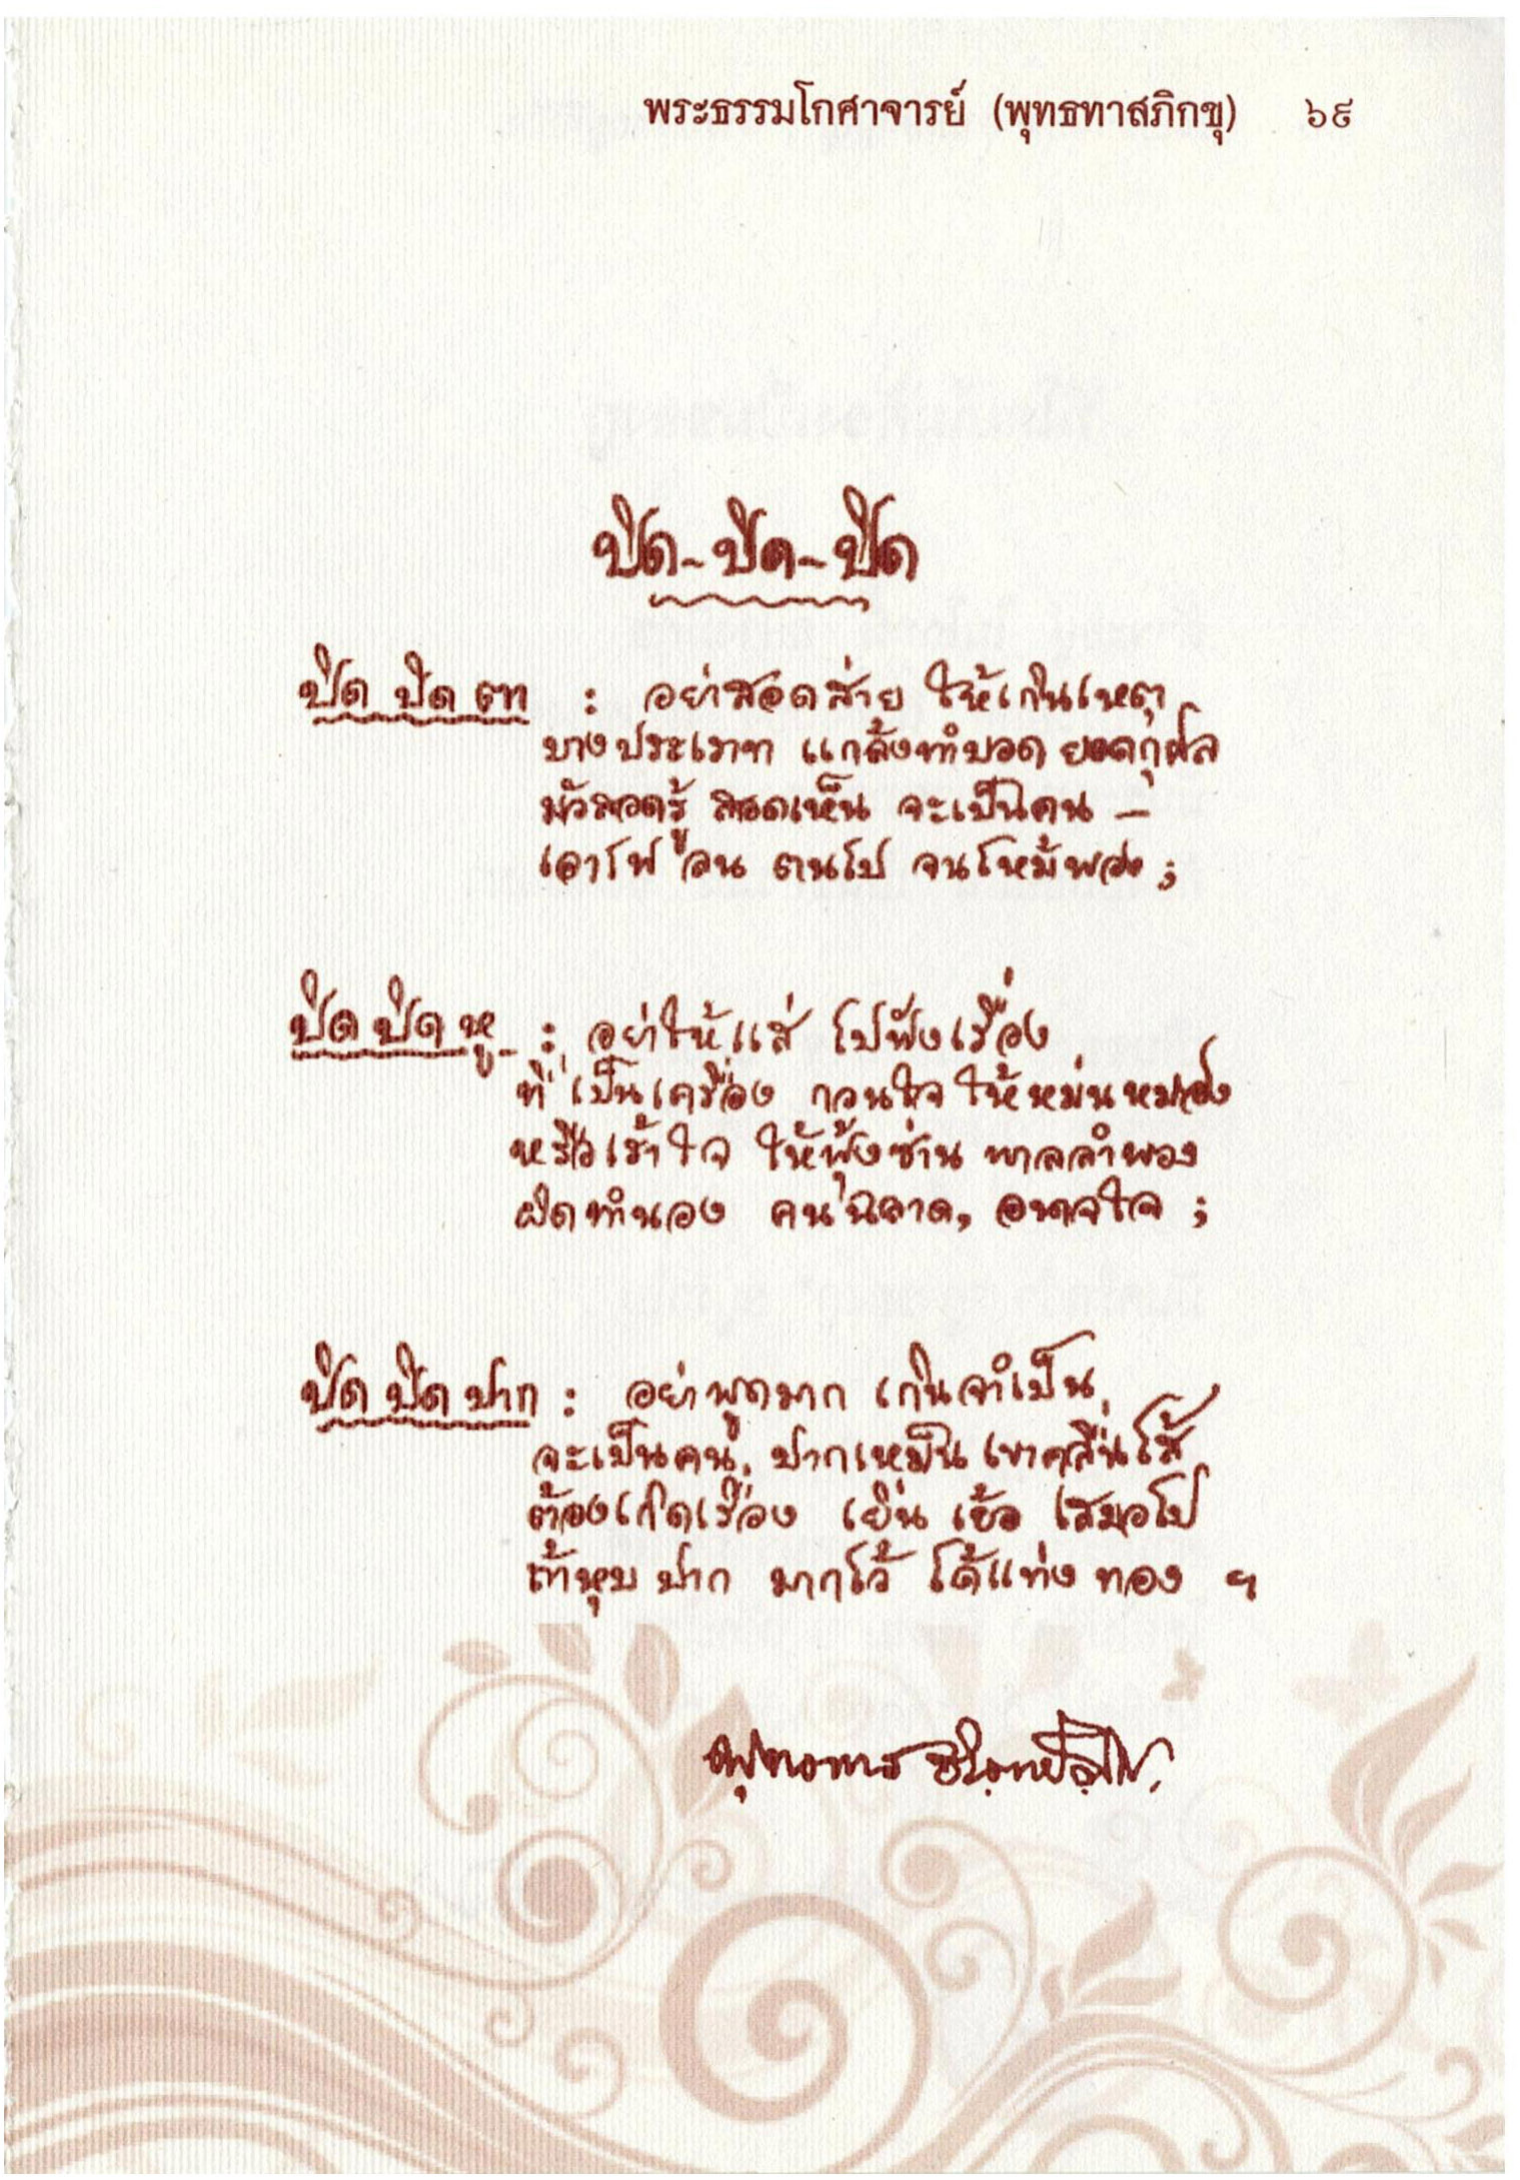 พระธรรมโกศาจารย์ (พุทธทาสภิกขุ) ๖๙
ปิด-ปิด-ปิด
ปิด ปิด ตา : อย่าสอดส่าย ให้เกินเหตุ
บางประเภท แกล้งทำบอด ยอดกุศล
มัวสอดรู้ สอดเห็น จะเป็นคน –
เอาไฟ ลน ตนไป จนไหม้พอง ;
ปิด ปิด หู : อย่าให้แส่ ไปฟังเรื่อง
ที่ เป็นเครื่อง กวนใจ ให้หม่นหมอง
หรือเร้าใจ ให้ฟุ้งซ่าน พาลลำพอง
ผิดทำนอง คนฉลาด, อนาถใจ ;
ปิด ปิด ปาก : อย่าพูดมาก เกินจำเป็น
จะเป็นคน, ปากเหม็น เขาคลื่นไส้
ต้องเกิดเรื่อง เยิ่น เย้อ เสมอไป
ถ้าหุบ ปาก มากไว้ ได้แท่ง ทอง ฯ
พุทธทาส อินทปัญโญ.